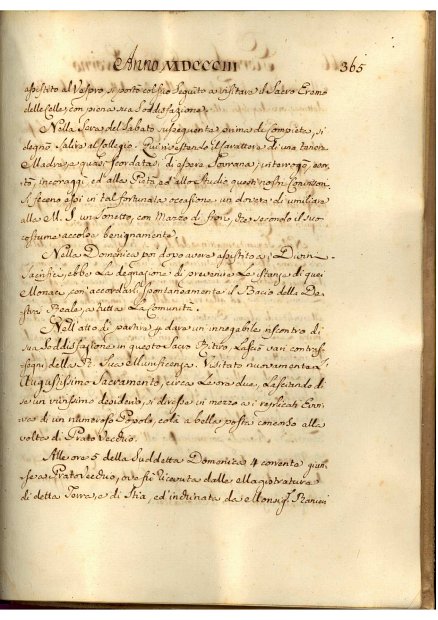 Anno MDCCCIII 365
assistito al Vespro, si portò col suo seguito a visitare il Sacro Eremo
delle Celle, con piena sua Soddisfazione.
Nella Sera del Sabato susseguente prima di Compieta, si
degnò Salire al Collegio. Qui vestendo il carattere di una tenera
Madre, e quasi scordatasi di essere Sovrana, interrogò, esor-
tò, incoraggì, ed alla Pietà, ed allo Studio questi nostri
Si fecero essi in tal fortunata occasione un dovere di umiliare
alla M. S. un Sonetto, con Mazzo di fiori, che secondo il suo
costume accolse benignamente.
Nella Domenica poi dopo avere assistito a i Divini
Sacrifizi, ebbe la degnazione di prevenire le istanze di quei
Monaci, con accordarli spontaneamente il Bacio della De-
stra Reale, a tutta la Comunità.
Nell'atto di partire, e dare un innegabile riscontro di
sua Soddisfazione in questo Sacro Ritiro, lasciò vari contras-
segni della R. Sua Munificenza. Visitato nuovamente l'
Augustissimo Sacramento, circa le ore due, lasciando di
se un vivissimo desiderio, si diresse in mezzo a i replicati Evvi-
va di un numeroso Popolo, colà a bella posta concorso alla
volta di Prato Vecchio.
Alle ore 5 della Suddetta Domenica 4 corrente giun-
se a Prato Vecchio, ove fu ricevuta dalle Magistrature
di detta Terra, e di Stia, ed inchinata da Monsig.